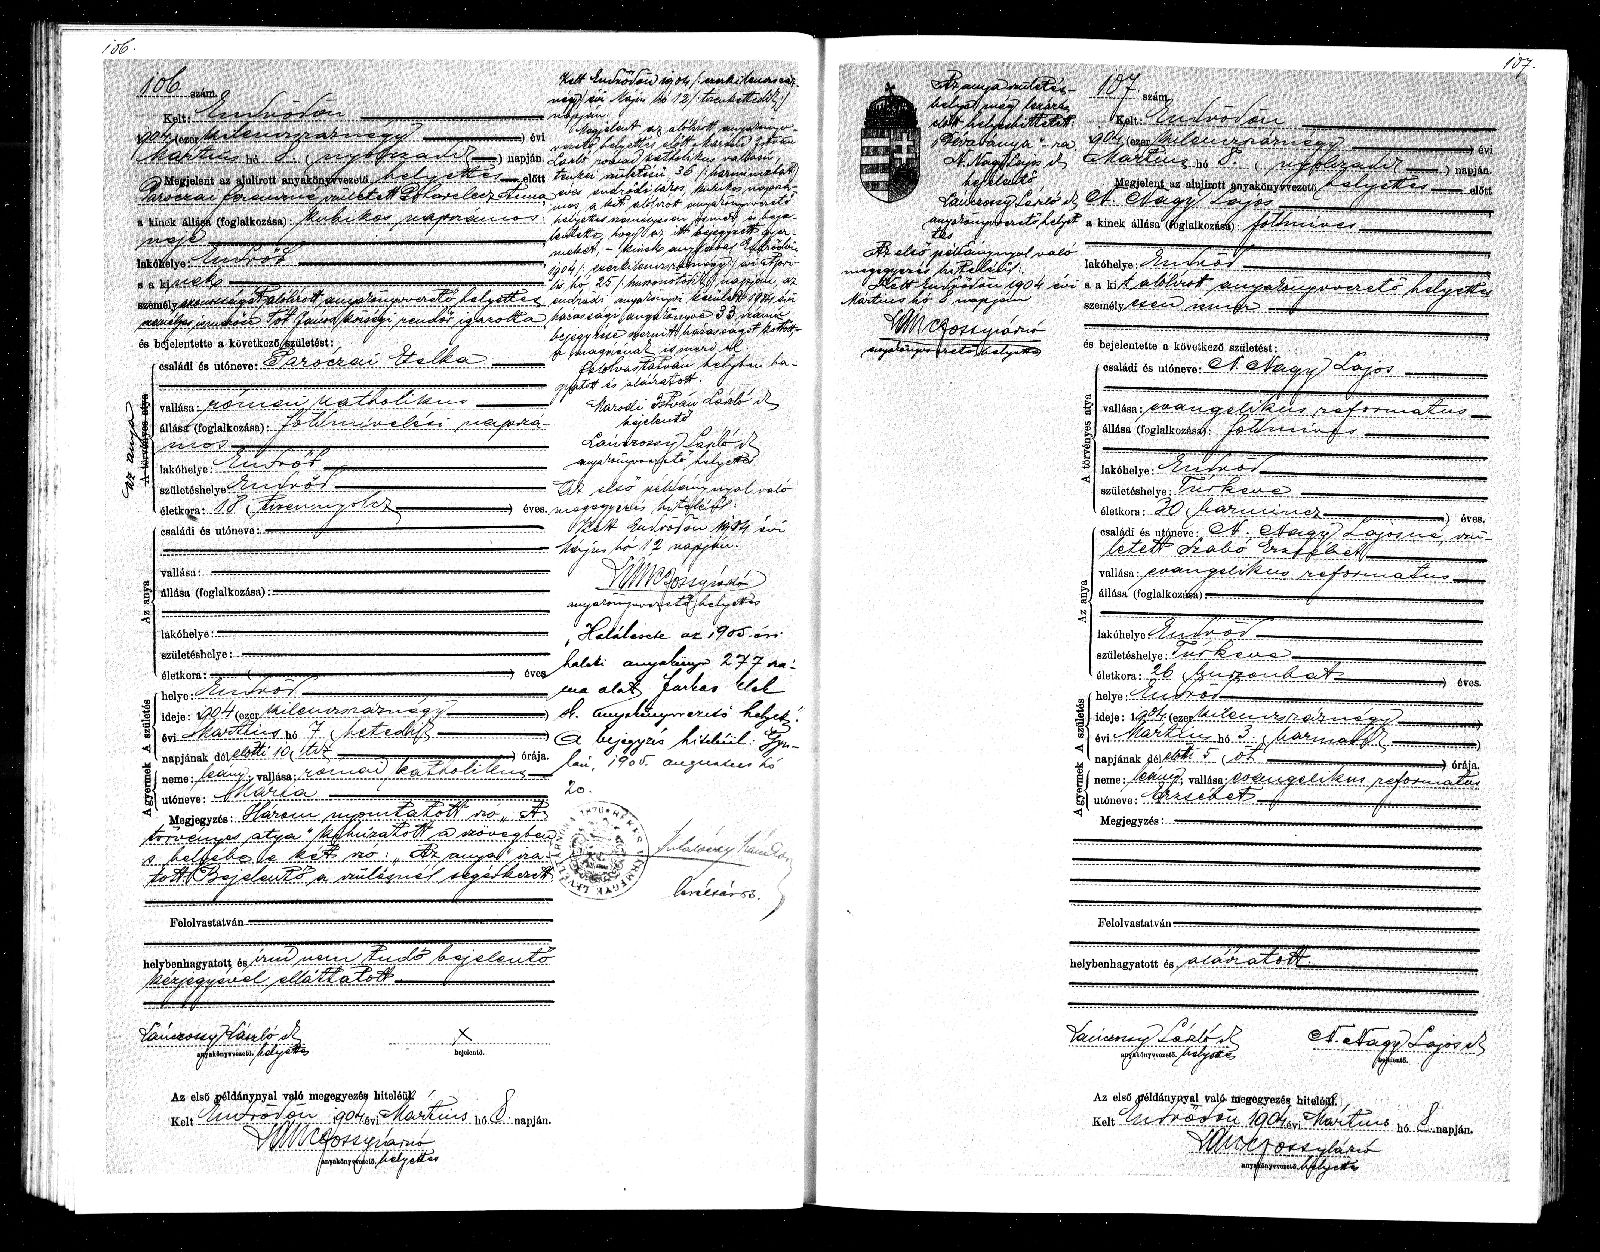 106.
106 szám.
Kelt: Endrődön
1904 (ezer kilenczszáznégy) évi
Martius hó 8 (nyolczadik) napján.
Megjelent az alulirott anyakönyvvezető helyettes előtt
Paróczai Ferenczné született Anna
a kinek állása (foglalkozása): kubikos napszámos
neje
lakóhelye: Endrőd
s a kinek
személyazonosságát alólirott anyakönyvvezető helyettes
Tót János községi rendőr igazolta
és bejelentette a következő születést:
az anya
A törvényes atya
családi és utóneve: Paróczai Etelka
vallása: római katholikus
állása (foglalkozása): földmivelési napszá-
mos
lakóhelye: Endrőd
születéshelye: Endrőd
életkora: 18 (tizennyolcz) éves.
Az anya
családi és utóneve:
vallása:
állása (foglalkozása):
lakóhelye:
születéshelye:
életkora: ) éves
A születés
helye: Endrőd
ideje: 1904 (ezer kilenczszáznégy)
évi Martius hó 7 (hetedik)
napjának délelőtti 10 (tiz) órája.
A gyermek
neme: leány; vallása: római katholikus
utóneve: Mária
Megjegyzés: Három nyomtatott szó „A
törvényes atya" kihúzatott a szövegben
s helyébe e két szó: „Az anya" íra-
tott. Bejelentő a szülésnél segédkezett
Felolvastatván
helybenhagyatott és írni nem tudó bejelentő
kézjegyével elláttatott
Lánczossy László
anyakönyvvezető. helyettes
X
bejelentő.
Az első példánynyal való megegyezés hiteléül.
Kelt Endrődön 1904 évi Martius hó 8 napján.
Lánczossy László
anyakönyvvezető. helyettes
Kelt Endrődön 1904 (ezerkilenczszáz-
négy) évi Május hó 12 (tizenkettedik)
napján.
Megjelent az alólirott anyakönyv-
vezető helyettes előtt Maródi István
László római katholikus vallású,
36 (harminczhat)
éves endrődi lakos, kubikos napszá-
mos, a kit alólirott anyakönyvvezető
helyettes személyesen ismer s beje-
lentette, hogy az itt bejegyzett gyer-
meket, – kinek anyjával Endrődön
1904 (ezerkilenczszáznégy) évi Ápri-
lis hó 25 (huszonötödik) napján, az
endrődi anyakönyvi kerület 1904 évi
házassági anyakönyve 33 számú
bejegyzése szerint házasságot kötött –
magáénak ismeri el.
Felolvastatván helyben ha-
gyatott és aláíratott.
Maródi István László
bejelentő
Lánczossy László
anyakönyvvezető helyettes
Az első példánynyal való
megegyezés hiteléül.
Kelt Endrődön 1904 évi
Május hó 12 napján.
Lánczossy László
anyakönyvvezető helyettes
Halálesete az 1905. évi
halálti anyakönyv 277 szá-
ma alatt Farkas
anyakönyvvezető helyett.
A bejegyzés hiteléül: Gyu-
lán, 1905. augusztus hó
20.
107.
Az anya születés-
helye
előtt helyesbittetett
„Dévaványa"-ra
N. Nagy Lajos
bejelentő
Lánczossy László
anyakönyvvezető helyet-
tes
Az első példánynyal való
megegyezés hiteléül.
Kelt Endrődön 1904 évi
Martius hó 8 napján
Lánczossy László
anyakönyvvezető helyettes
107 szám.
Kelt: Endrődön
1904 (ezer kilenczszáznégy) évi
Martius hó 8. (nyolczadik) napján.
Megjelent az alulirott anyakönyvvezető helyettes előtt
N. Nagy Lajos
a kinek állása (foglalkozása): földmives
lakóhelye: Endrőd
s a kit alólirott anyakönyvvezető helyettes
személyesen ismer
és bejelentette a következő születést:
A törvényes atya
családi és utóneve: N. Nagy Lajos
vallása: evangelikus református
állása (foglalkozása): földmives
lakóhelye: Endrőd
születéshelye: Túrkeve
életkora: 30 (harmincz) éves.
Az anya
családi és utóneve: N. Nagy Lajosné, szü-
letett Szabó Erzsébet
vallása: evangelikus református
állása (foglalkozása):
lakóhelye Endrőd
születéshelye: Túrkeve
életkora: 26 (huszonhat) éves.
A születés
helye: Endrőd
ideje: 1904 (ezer kilenczszáznégy)
évi Martius hó 3. (harmadik)
napjának délelőtti 5 (öt) órája.
A gyermek
neme: leány; vallása: evangelikus református
utóneve: Erzsébet
Megjegyzés:
Felolvastatván
helybenhagyatott és aláíratott.
Lánczossy László
anyakönyvvezető, helyettes
N. Nagy Lajos
bejelentő.
Az első példánynyal való megegyezés hiteléül.
Kelt Endrődön 1904 évi Martius hó 8 napján.
Lánczossy László
anyakönyvvezető, helyettes